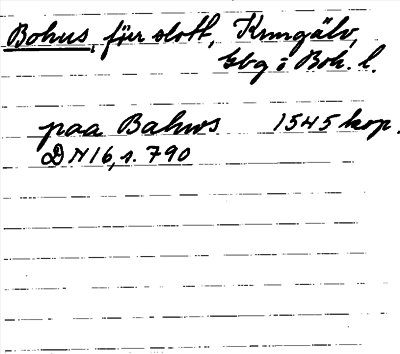 Bohus, förr slott, Kungälv,
Gbg o Boh. l.
paa Bahws 1545 kop.
DN 16, s. 790